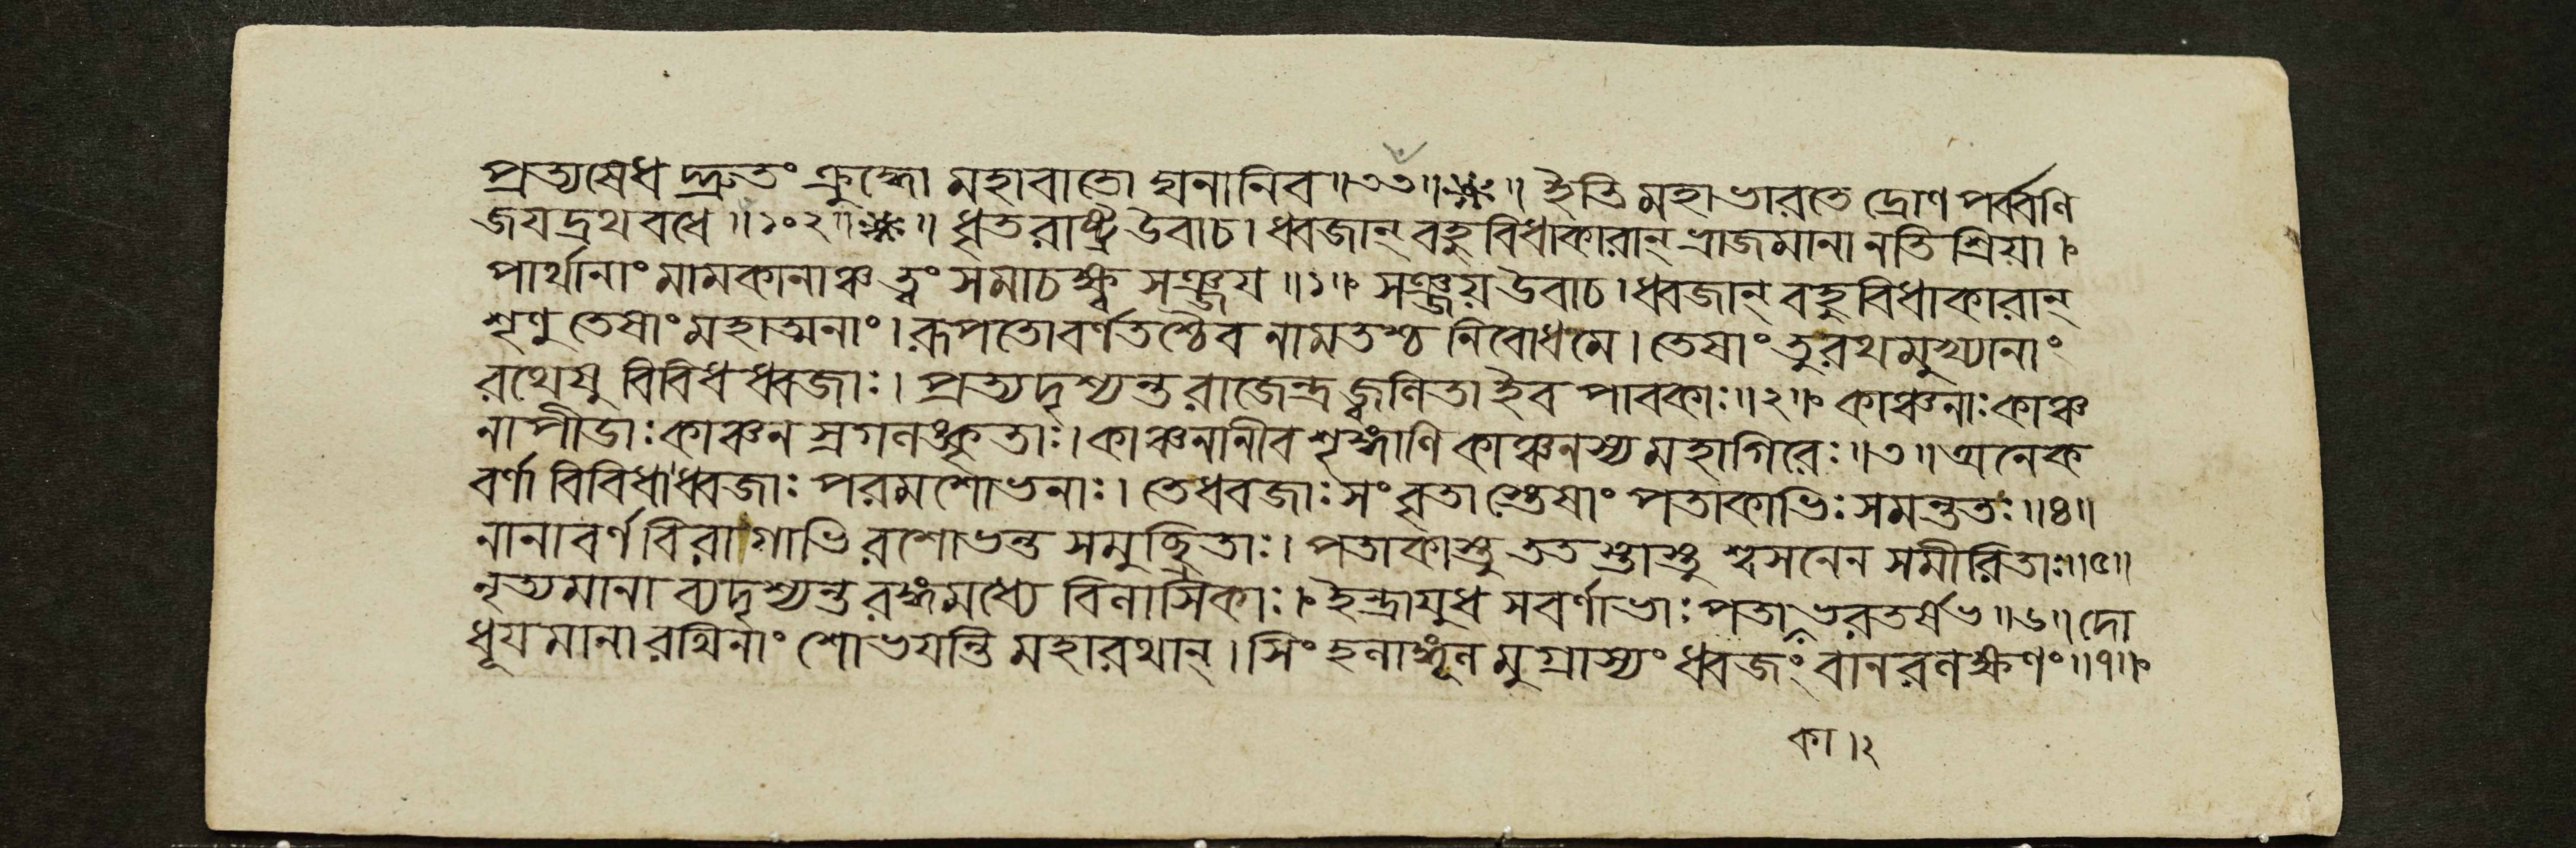 প্রত্যষেধ দ্দ্রুতং ক্রুদ্ধো মহাবাতো ঘনানিব॥৩৩॥❈॥ ইতি মহাভারতে দ্রোণ পর্ব্বণি
জযদ্রথ বধে॥১০২॥❈॥ ধৃতরাষ্ট্র উবাচ। ধ্বজান্ বহুবিধাকারান্ ভ্রাজমানা নতি শ্রিয়া।
পার্থানাং মামকানাঞ্চ ত্বং সমাচক্ষ্ব সঞ্জয॥১॥ সঞ্জয় উবাচ। ধ্বজান্ বহুবিধাকারান্
শৃণু তেষাং মহাত্মনাং। রূপতো বর্ণতশ্চৈব নামতশ্চ নিবোধমে। তেষাং তু রথমুখ্যানাং
রথেষু বিবিধ ধ্বজাঃ। প্রত্যদৃশ্যন্ত রাজেন্দ্র জ্বলিতা ইব পাবকাঃ॥২॥ কাঞ্চনাঃ কাঞ্চ
নাপীডাঃ কাঞ্চন স্রগলঙ্কৃতাঃ। কাঞ্চনানীব শৃঙ্গাণি কাঞ্চনস্য মহাগিরেঃ॥৩॥ অনেক
বর্ণা বিবিধা ধ্বজাঃ পরমশোভনাঃ। তে ধ্বজাঃ সংবৃতা স্তেষাং পতাকাভিঃ সমন্ততঃ॥৪॥
নানাবর্ণ বিরাগাভি রশোভন্ত সমুচ্ছ্রিতাঃ। পতাকাস্তু তত স্তাস্তু শ্বসনেন সমীরিতাঃ॥৫॥
নৃত্যমানা ব্যদৃশ্যন্ত রঙ্গমধ্যে বিলাসিকাঃ। ইন্দ্রাযুধ সবর্ণাভাঃ পতা ভরতর্ষভ॥৬॥ দো
ধূযমানা রথিনাং শোভযন্তি মহারথান্। সিংহলাঙ্গূল মুগ্রাস্যং ধ্বজং বানরলক্ষণং॥৭॥
কা।২